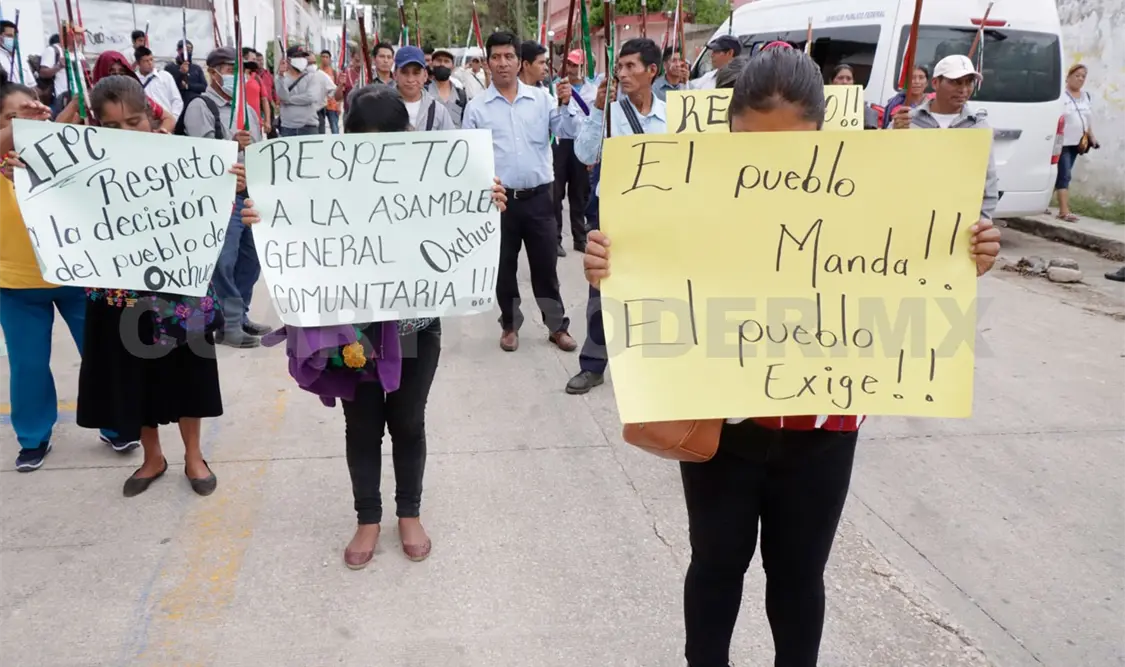 IEPC
Respeto
a la decisión
del pueblo de
Oxchuc
RESPETO
A LA ASAMBLEA
GENERAL Oxchuc
COMUNITARIA !!!
El pueblo
Manda!!
El pueblo
Exige!!
SERVICIO PUBLICO FEDERAL
CUARTOPODER.MX